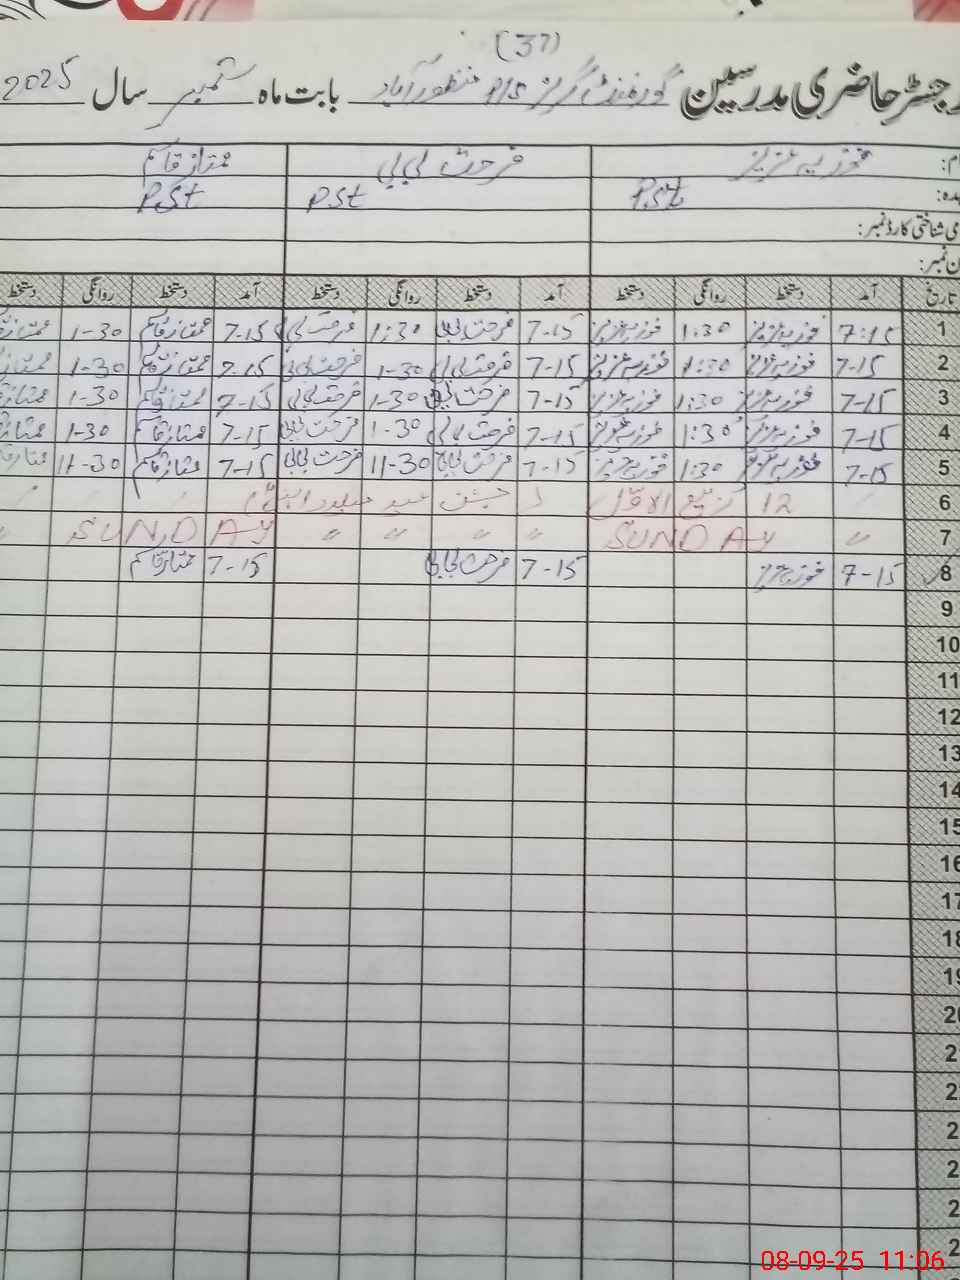 (37)
رجسٹر حاضری مدرسین گورنمنٹ گرلز منظور آباد بابت ماہ ستمبر سال 2025
نام: فوزیہ عزیز فرحت بی بی ممتاز قاسم
عہدہ: PSt PSt PSt
قومی شناختی کارڈ نمبر:
فون نمبر:
تاریخ آمد دستخط روانگی دستخط آمد دستخط روانگی دستخط آمد دستخط روانگی دستخط
1 7:15 فوزیہ عزیز 1:30 فوزیہ عزیز 7-15 فرحت بی بی 1:30 فرحت بی بی 7-15 ممتاز قاسم 1-30 ممتاز
2 7-15 فوزیہ عزیز 1:30 فوزیہ عزیز 7-15 فرحت بی بی 1-30 فرحت بی بی 7-15 ممتاز قاسم 1-30 ممتاز
3 7-15 فوزیہ عزیز 1:30 فوزیہ عزیز 7-15 فرحت بی بی 1-30 فرحت بی بی 7-15 ممتاز قاسم 1-30 ممتاز
4 7-15 فوزیہ عزیز 1:30 فوزیہ عزیز 7-15 فرحت بی بی 1-30 فرحت بی بی 7-15 ممتاز قاسم 1-30 ممتاز
5 7-15 فوزیہ عزیز 1:30 فوزیہ عزیز 7-15 فرحت بی بی 11-30 فرحت بی بی 7-15 ممتاز قاسم 11-30 ممتاز
6 12 ربیع الاوّل ( جشن عید میلاد النبیؐ )
7 〃 SUNDAY 〃 〃 〃 〃 SUNDAY 〃
8 7-15 فوزیہ عزیز 7-15 فرحت بی بی 7-15 ممتاز قاسم
9
10
11
12
13
14
15
16
17
18
19
20
2
2
2
2
2
2
08-09-25 11:06